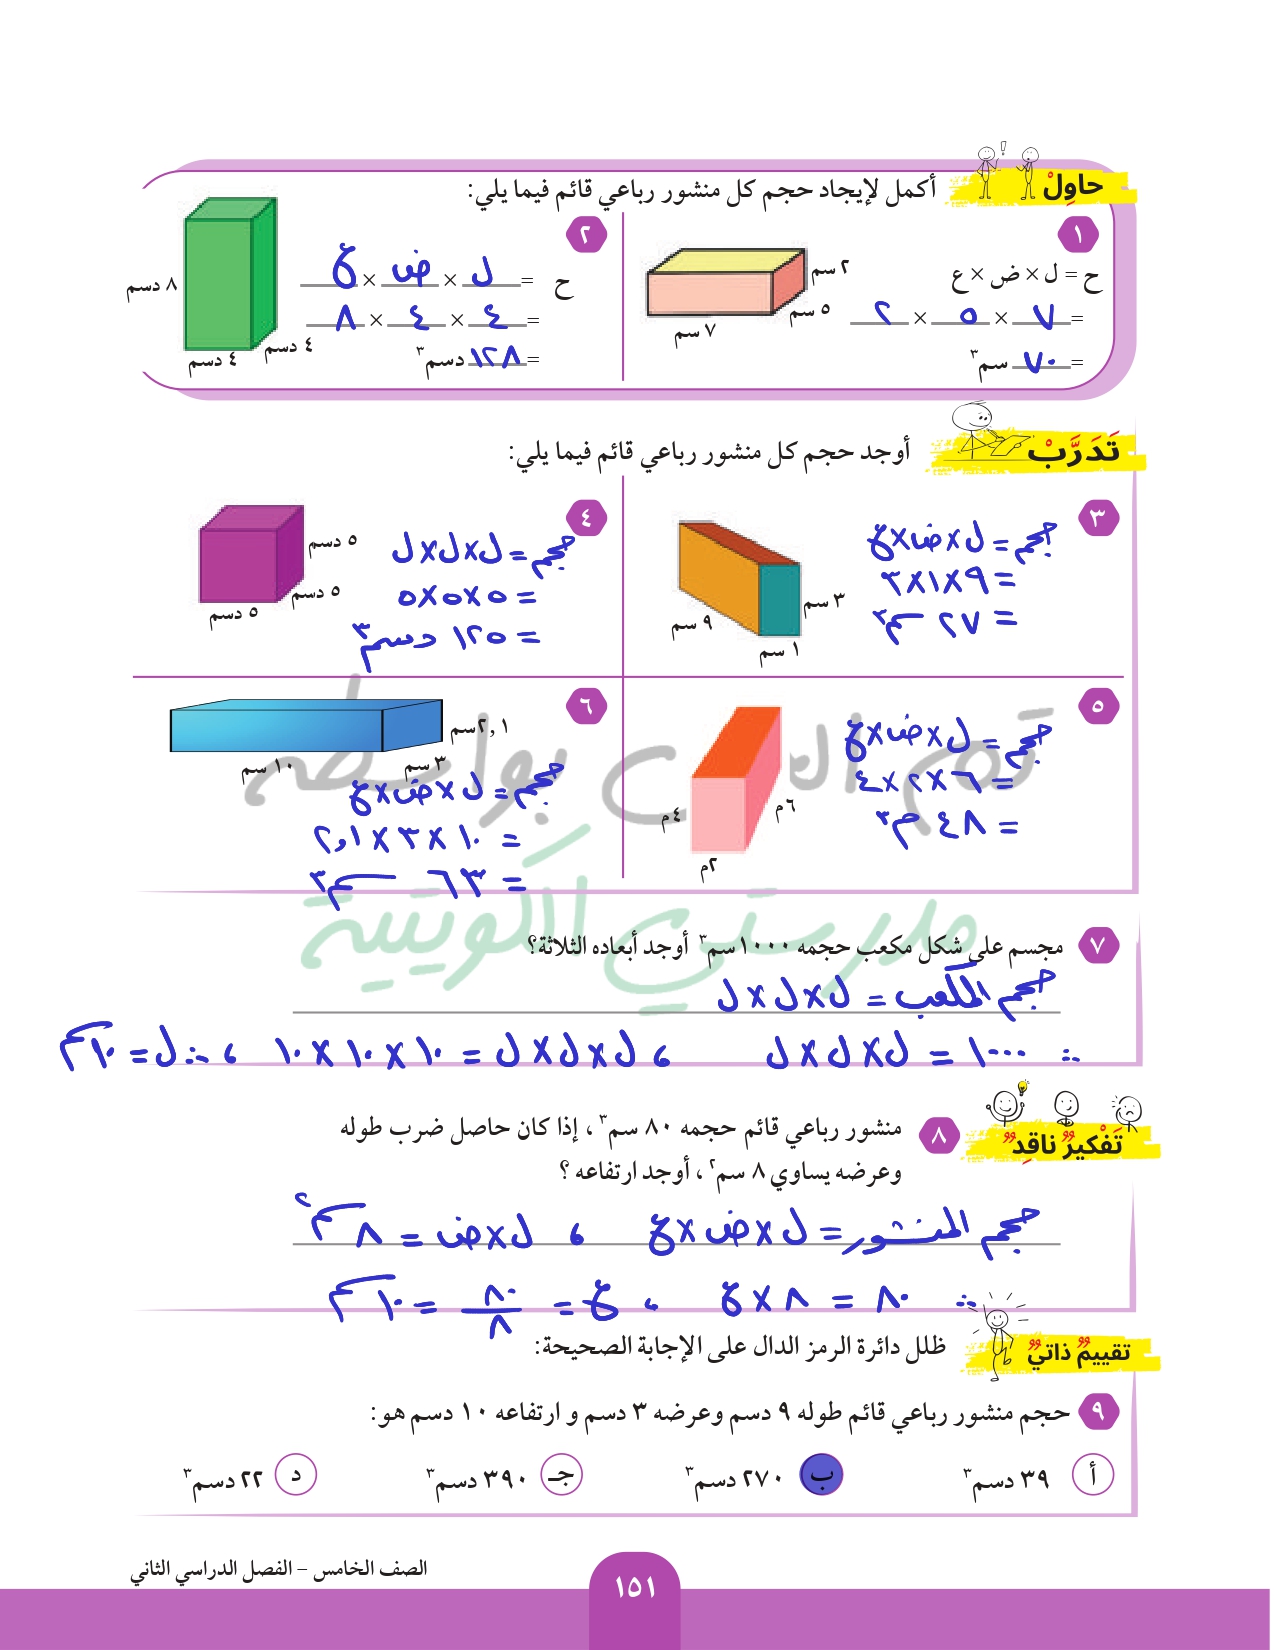 حاوِلْ
أكمل لإيجاد حجم كل منشور رباعي قائم فيما يلي:
١
ح = ل × ض × ع
= ٧ × ٥ × ٢
= ٧٠ سم٣
٢ سم
٥ سم
٧ سم
٢
ح = ل × ض × ع
= ٤ × ٤ × ٨
= ١٢٨ دسم٣
٨ دسم
٤ دسم
٤ دسم
تَدَرَّبْ
أوجد حجم كل منشور رباعي قائم فيما يلي:
٣
حجم = ل×ض×ع
= ٩×١×٣
= ٢٧ سم٣
٣ سم
٩ سم
١ سم
٤
حجم = ل×ل×ل
= ٥×٥×٥
= ١٢٥ دسم٣
٥ دسم
٥ دسم
٥ دسم
٥
حجم = ل×ض×ع
= ٦×٢×٤
= ٤٨ م٣
٦م
٤م
٢م
٦
٢,١سم
٣ سم
١٠ سم
حجم = ل×ض×ع
= ١٠ × ٣ × ٢,١
= ٦٣ سم٣
تم الحل بواسطة
مدرستي الكويتية
٧ مجسم على شكل مكعب حجمه ١٠٠٠سم٣ أوجد أبعاده الثلاثة؟
حجم المكعب = ل×ل×ل
∴ ١٠٠٠ = ل×ل×ل ، ل×ل×ل = ١٠×١٠×١٠ ، ∴ ل = ١٠سم
تَفْكيرٌ ناقِدٌ
٨ منشور رباعي قائم حجمه ٨٠ سم٣ ، إذا كان حاصل ضرب طوله
وعرضه يساوي ٨ سم٢ ، أوجد ارتفاعه ؟
حجم المنشور = ل×ض×ع ، ل×ض = ٨ سم٢
∴ ٨٠ = ٨ × ع ، ع = ٨٠/٨ = ١٠ سم
تقييمٌ ذاتيٌ
ظلل دائرة الرمز الدال على الإجابة الصحيحة:
٩ حجم منشور رباعي قائم طوله ٩ دسم وعرضه ٣ دسم و ارتفاعه ١٠ دسم هو:
أ ٣٩ دسم٣ ب ٢٧٠ دسم٣ جـ ٣٩٠ دسم٣ د ٢٢ دسم٣
الصف الخامس – الفصل الدراسي الثاني
١٥١